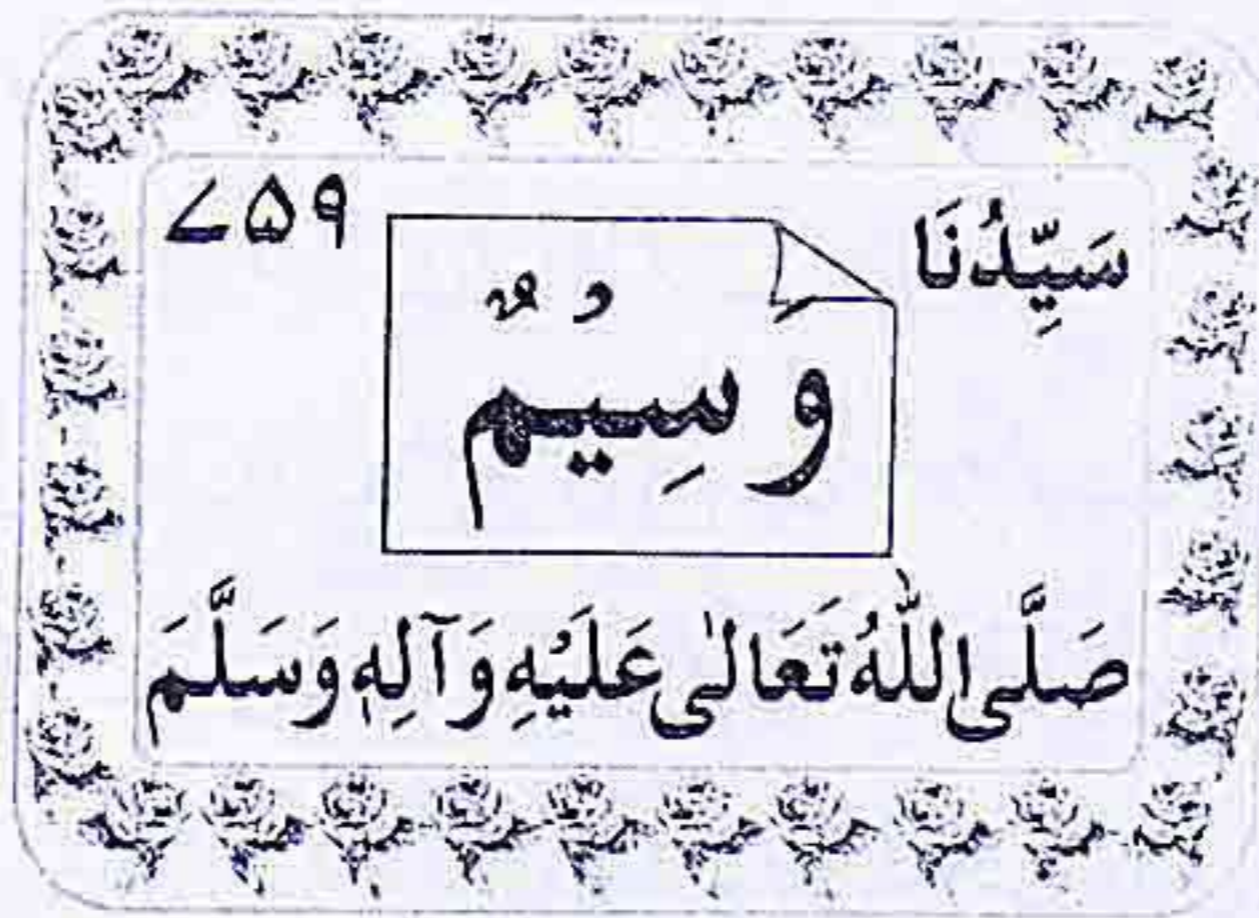 سَیِّدُنَا ۷۵۹
وَسِیْمٌ
صَلَّی اللّٰهُ تَعَالٰی عَلَیْهِ وَآلِهٖ وَسَلَّمَ